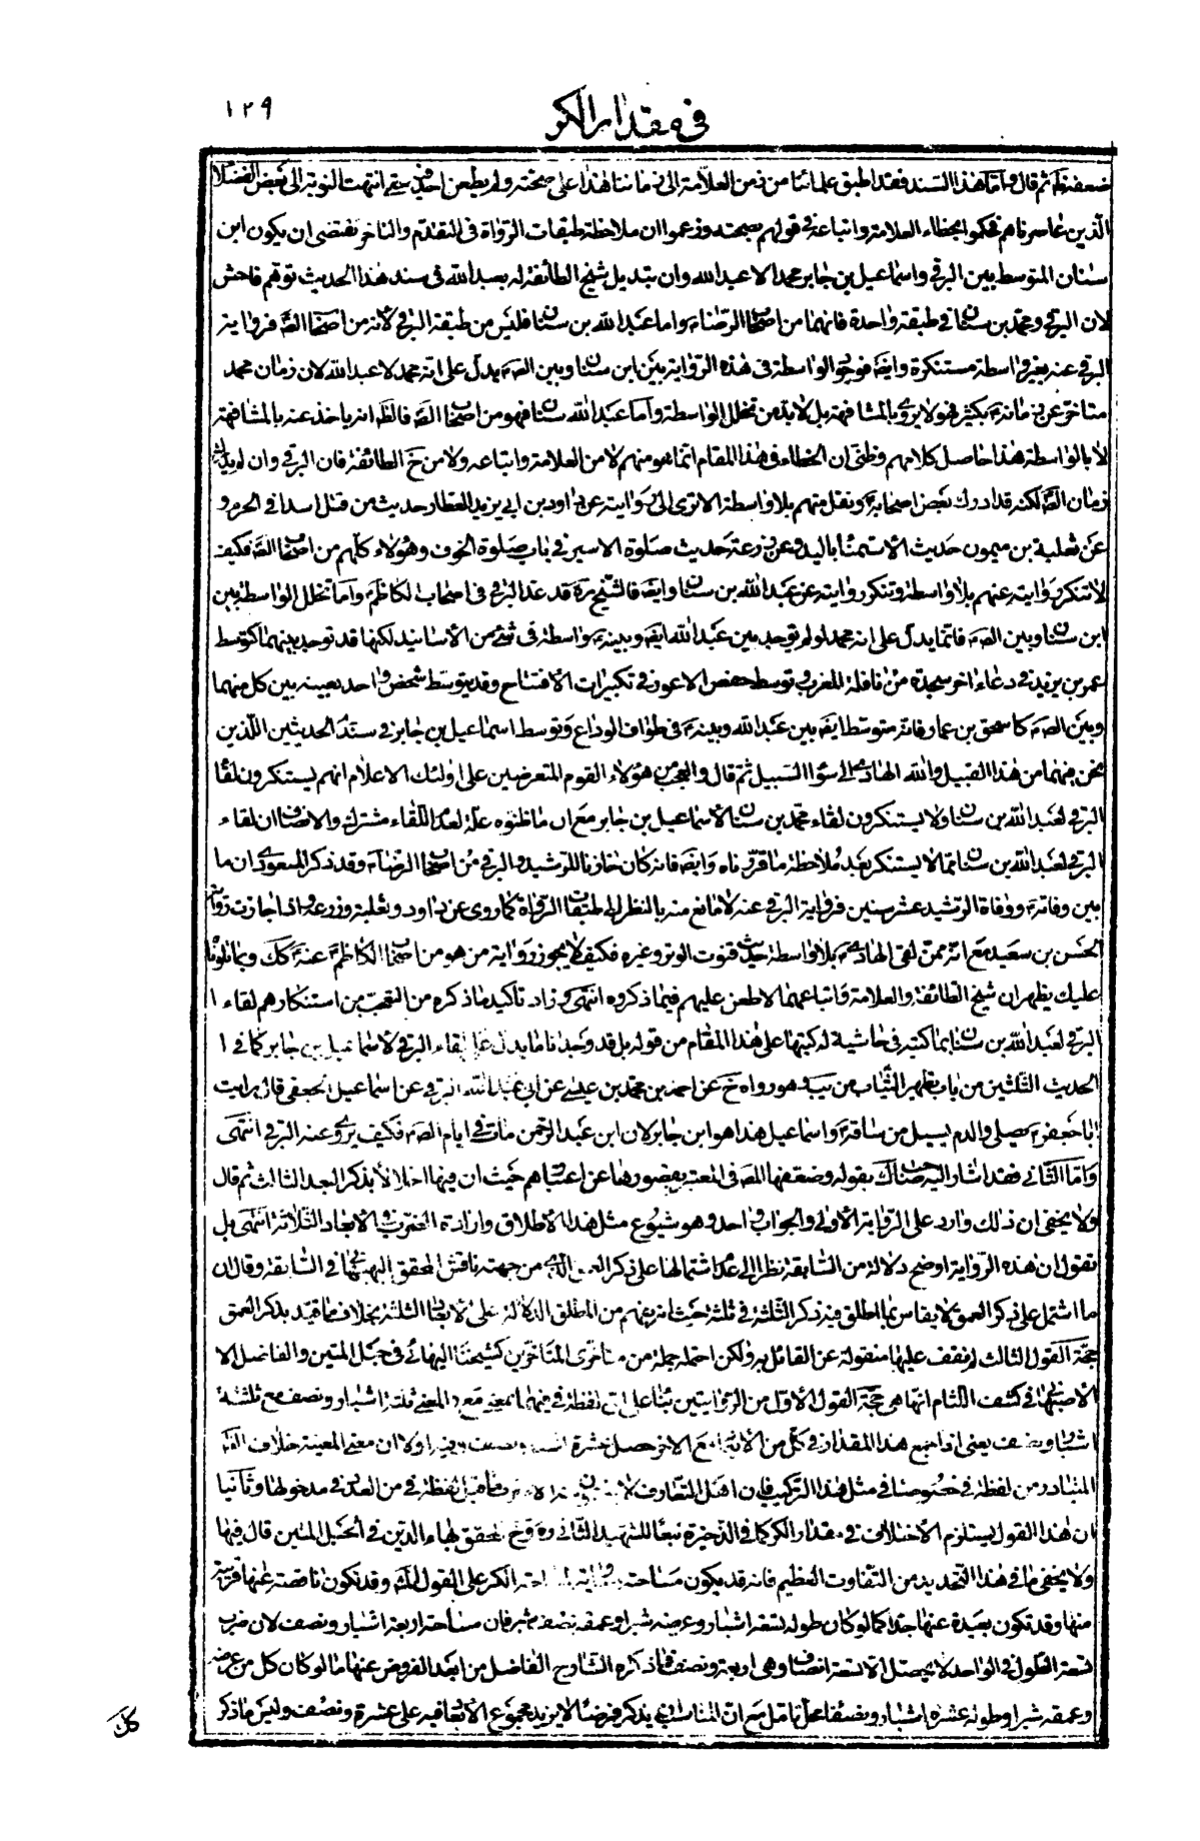 في مقدار الكر
١٢٩
ثم قال واما هذا السند فقد اطبق علمائنا من زمن العلامة الى زماننا هذا على صحته ولم يطعن احد فيه حتى انتهت النوبة الى بعض الفضلا
الذين عاصرناهم فحكموا بخطاء العلامة واتباعه في قولهم بصحته وزعموا ان ملاحظة طبقات الرواة في التقدم والتاخر تقتضى ان يكون ابن
سنان المتوسط بين البرقي واسماعيل بن جابر محمدا لا عبد الله وان تبديل شيخ الطائفة له بعبد الله في سند هذا الحديث توهم فاحش
لان البرقي ومحمد بن سنان في طبقة واحدة فانهما من اصحاب الرضا واما عبد الله بن سنان فليس من طبقة البرقي لانه من اصحاب الصَّ فرواية
البرقي عنه بغير واسطة مستنكرة وايضَ فوجود الواسطة في هذه الرواية بين ابن سنان وبين الصَّ يدل على انه محمد لا عبد الله لان زمان محمد
متاخر عن زمانه بكثير فهو لا يروى بالمشافهة بل لا بد من تخلل الواسطة واما عبد الله بن سنان فهو من اصحاب الصَّ فالظَ انه ياخذ عنه بالمشافهة
لا بالواسطة هذا حاصل كلامهم وظنى ان الخطاء في هذا المقام انما هو منهم لا من العلامة واتباعه ولا من خ الطائفة فان البرقي وان لم يدرك
زمان الصَّ لكنه قد ادرك بعض اصحابه ونقل منهم بلا واسطة الا ترى الى روايته عن داود بن ابي يزيد العطار حديث من قتل اسدا في الحرم و
عن ثعلبة بن ميمون حديث الاستمناء باليد وعن زرعة حديث صلوة الاسير في باب صلوة الخوف وهؤلاء كلهم من اصحاب الصَّ فكيف
لا تنكر روايته عنهم بلا واسطة وتنكر روايته عن عبد الله بن سنان وايضَ فالشيخ ره قد عد البرقي في اصحاب الكاظم واما تخلل الواسطة بين
ابن سنان وبين الصَّ فانما يدل على انه محمد لو لم توجد بين عبد الله ايضَ وبينه واسطة في شئ من الاسانيد لكنها قد توجد بينهما كتوسط
عمر بن يزيد في دعاء اخر سجدة من نافلة المغرب وتوسط حفص الاعور في تكبيرات الافتتاح وقد يتوسط شخص واحد بعينه بين كل منهما
وبين الصَّ كاسحق بن عمار فانه متوسط ايضَ بين عبد الله وبينه في طواف الوداع وتوسط اسماعيل بن جابر في سند الحديثين اللذين
نحن فيهما من هذا القبيل والله الهادى الى سواء السبيل ثم قال والعجب من هؤلاء القوم المتعرضين على اولئك الاعلام انهم يستنكرون لقاء
البرقي لعبد الله بن سنان ولا يستنكرون لقاء محمد بن سنان لاسماعيل بن جابر مع ان ما ظنوه علة لعدم اللقاء مشترك والانصاف ان لقاء
البرقي لعبد الله بن سنان مما لا يستنكر بعد ملاحظة ما قررناه وايضَ فانه كان خازنا للرشيد والبرقي من اصحاب الرضا وقد ذكر المسعودى ان ما
بين وفاته ووفاة الرشيد عشر سنين فرواية البرقي عنه لا مانع منه بالنظر الى طبقات الرواة كما روى عن داود وثعلبة وزرعة واذا جازت رواية
الحسن بن سعيد مع انه ممن لقى الهادى بلا واسطة حديث قنوت الوتر وغيره فكيف لا يجوز رواية من هو من اصحاب الكاظم عنه كك وبما تلوناه
عليك يظهر ان شيخ الطائفة والعلامة واتباعهما لا طعن عليهم فيما ذكروه انتهى وزاد تأكيد ما ذكره من التعجب من استنكارهم لقاء
البرقي لعبد الله بن سنان بما كتبه في حاشية له كتبها على هذا المقام من قوله بل قد وجدنا ما يدل على لقاء البرقي لاسماعيل بن جابر كما في
الحديث الثلثين من باب تطهير الثياب من يب وهو رواه خ عن احمد بن محمد بن عيسى عن ابي عبد الله البرقي عن اسماعيل الجعفي قال رايت
ابا جعفر يصلي والدم يسيل من ساقه واسماعيل هذا هو ابن جابر لان ابن عبد الرحمن مات في ايام الصَّ فكيف يروى عنه البرقي انتهى
واما الثاني فقد اشار اليه صاحب بقوله وضعفها المصَ في المعتبر بقصورها عن اعتبارهم حيث ان فيها اخلالا بذكر البعد الثالث ثم قال
ولا يخفى ان ذلك وارد على الرواية الأولى والجواب واحد وهو شيوع مثل هذا الاطلاق وارادة الضرب في الابعاد الثلاثة انتهى بل
نقول ان هذه الرواية اوضح دلالة من السابقة نظرا الى عدم اشتمالها على ذكر العمق الذى من جهته ناقش المحقق البهبهانى في السابقة وقال ان
ما اشتمل على ذكر العمق لا يقاس بما اطلق فيه ذكر الثلثة في ثلثة حيث انه يفهم من المطلق الدلالة على الابعاد الثلثة بخلاف ما قيد بذكر العمق
حجة القول الثالث لم نقف عليها منقولة عن القائل به ولكن احتمله جملة من متاخرى المتاخرين كشيخنا البهائى في حبل المتين والفاضل الا
الاصبهانى في كشف اللثام انها هى حجة القول الاول من الروايتين بناء على ان لفظة في فيهما بمعنى مع والمعنى ثلثة اشبار ونصف مع ثلثة
اشبار ونصف يعنى اذا جمع هذا المقدار في كل من الابعاد مع الاخر حصل عشرة اشبار ونصف وفيه اولا ان معنى المعية خلاف الظَ
المتبادر من لفظة في خصوصا في مثل هذا التركيب فان اهل التعارف ما قبل لفظة في من العدد في مدخولها وثانيا
ان هذا القول يستلزم الاختلاف في مقدار الكر كما في الذخيرة تبعا للشهيد الثاني وه المحقق بهاء الدين في الحبل المتين قال فيها
ولا يخفى ما في هذا التحديد من التفاوت العظيم فانه قد يكون مساحته مساحة الكر على القول وقد تكون ناقصة عنها قريبة
منها وقد تكون بعيدة عنها جدا كما لو كان طوله تسعة اشبار وعرضه شبرا وعمقه نصف شبر فان مساحته اربعة اشبار ونصف لان ضرب
تسعة الطول في الواحد لا يحصل الا تسعة انصاف وهى اربعة ونصف فما ذكره الشارح الفاضل من ابعد الفروض عنها ما لو كان كل من عرضه
وعمقه شبرا وطوله عشرة اشبار ونصفا محل تامل مع ان المناسب يذكر فرضا لا يزيد مجموع الابعاد فيه على عشرة ونصف وليس ما ذكر
كل